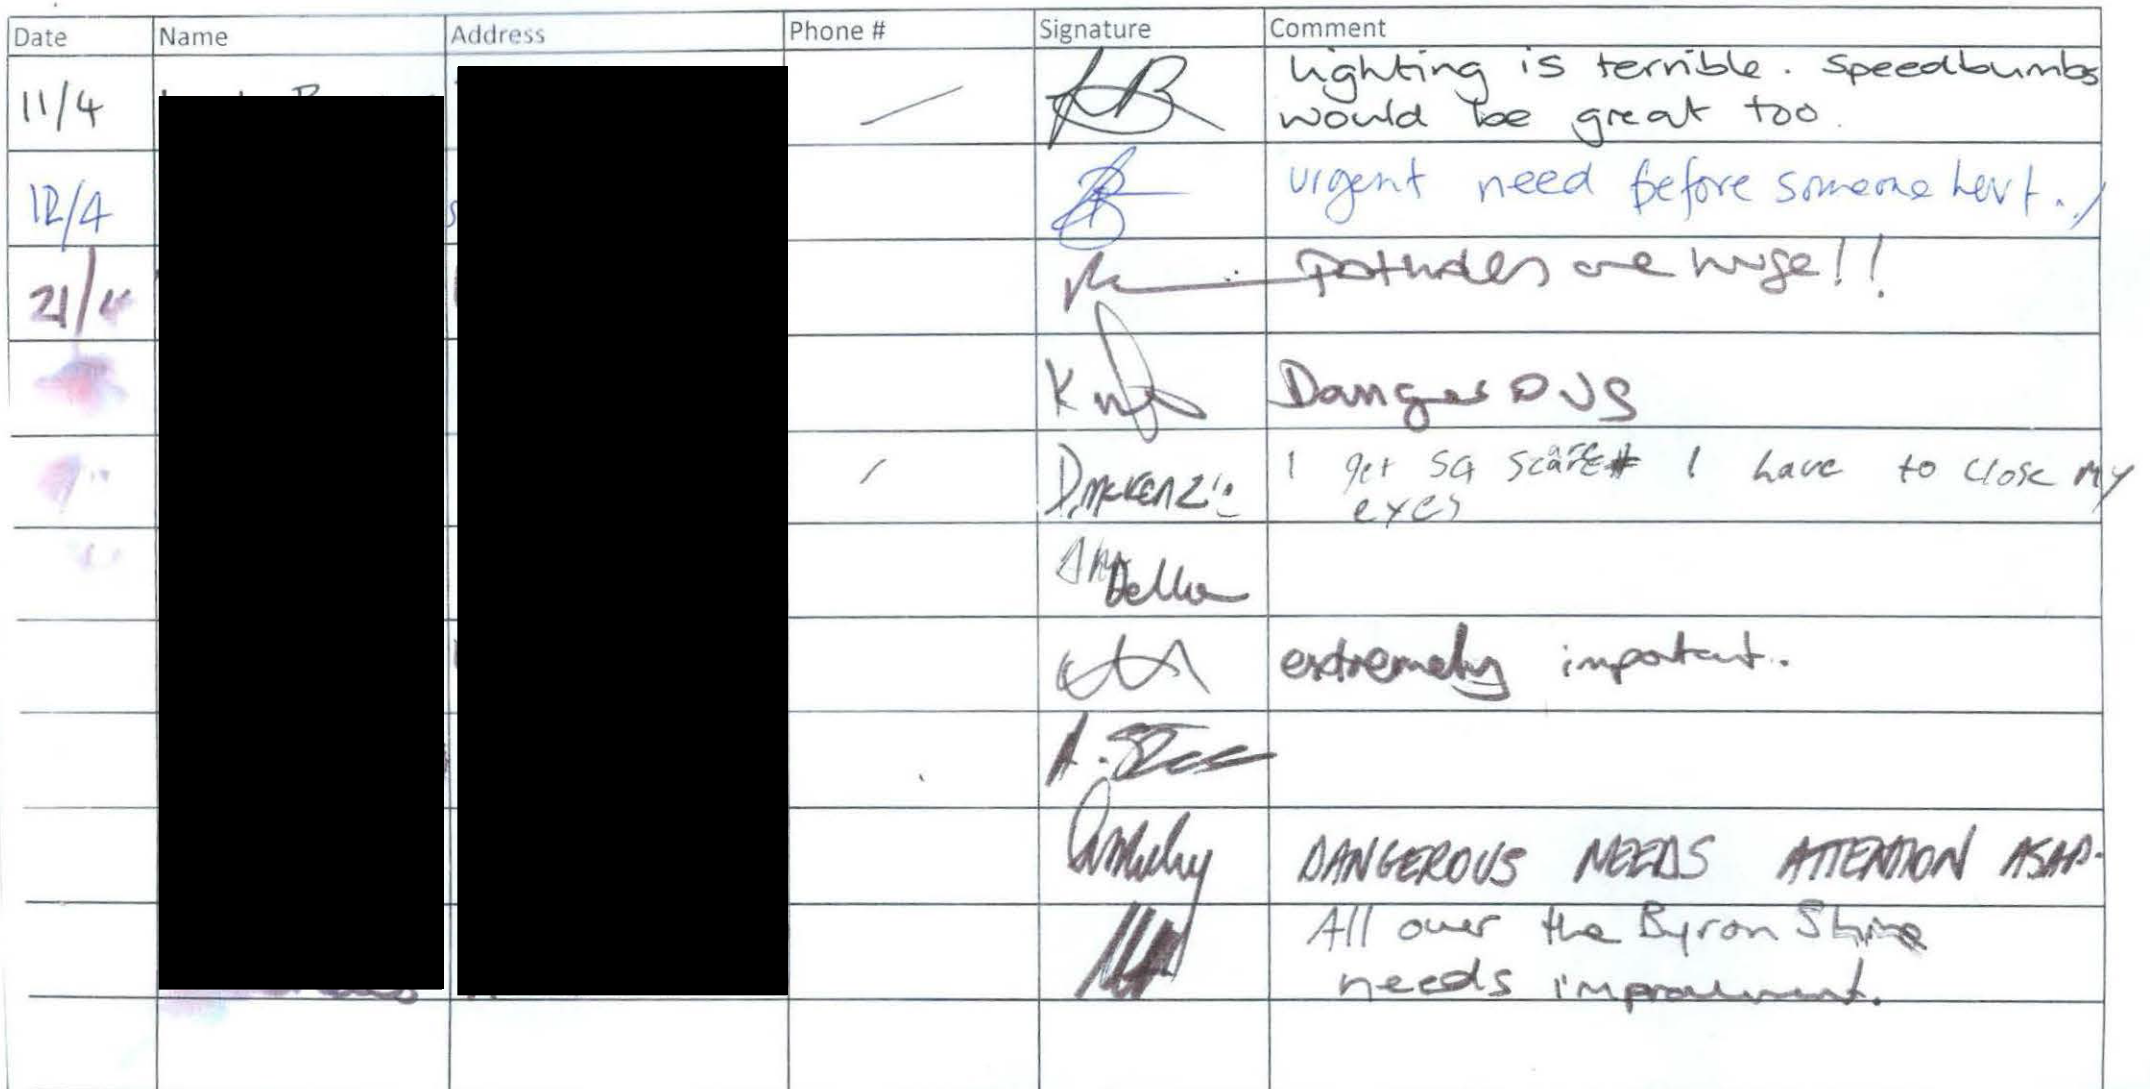 Date Name Address Phone # Signature Comment
11/4 lighting is terrible. Speedbumbs
would be great too.
12/4 urgent need before someone hurt.
21/4 Potholes are huge!!
Dangerous
D. McKenzie I get so scared I have to close my
eyes
extremely important.
DANGEROUS NEEDS ATTENTION ASAP.
All over the Byron Shire
needs improvement.